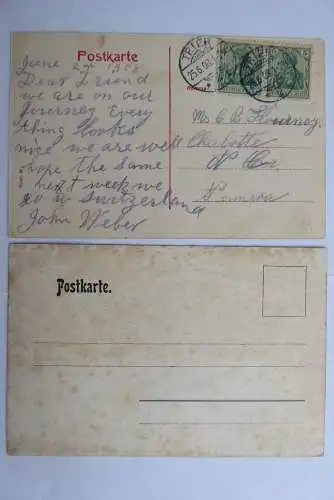 Postkarte
June 27 1908
Dear Friend
we are on our
Journey Every
thing Looks
nice we are well
hope the same
next week we
go to Switzerland
John Weber
Charlotte
N
America
Postkarte.